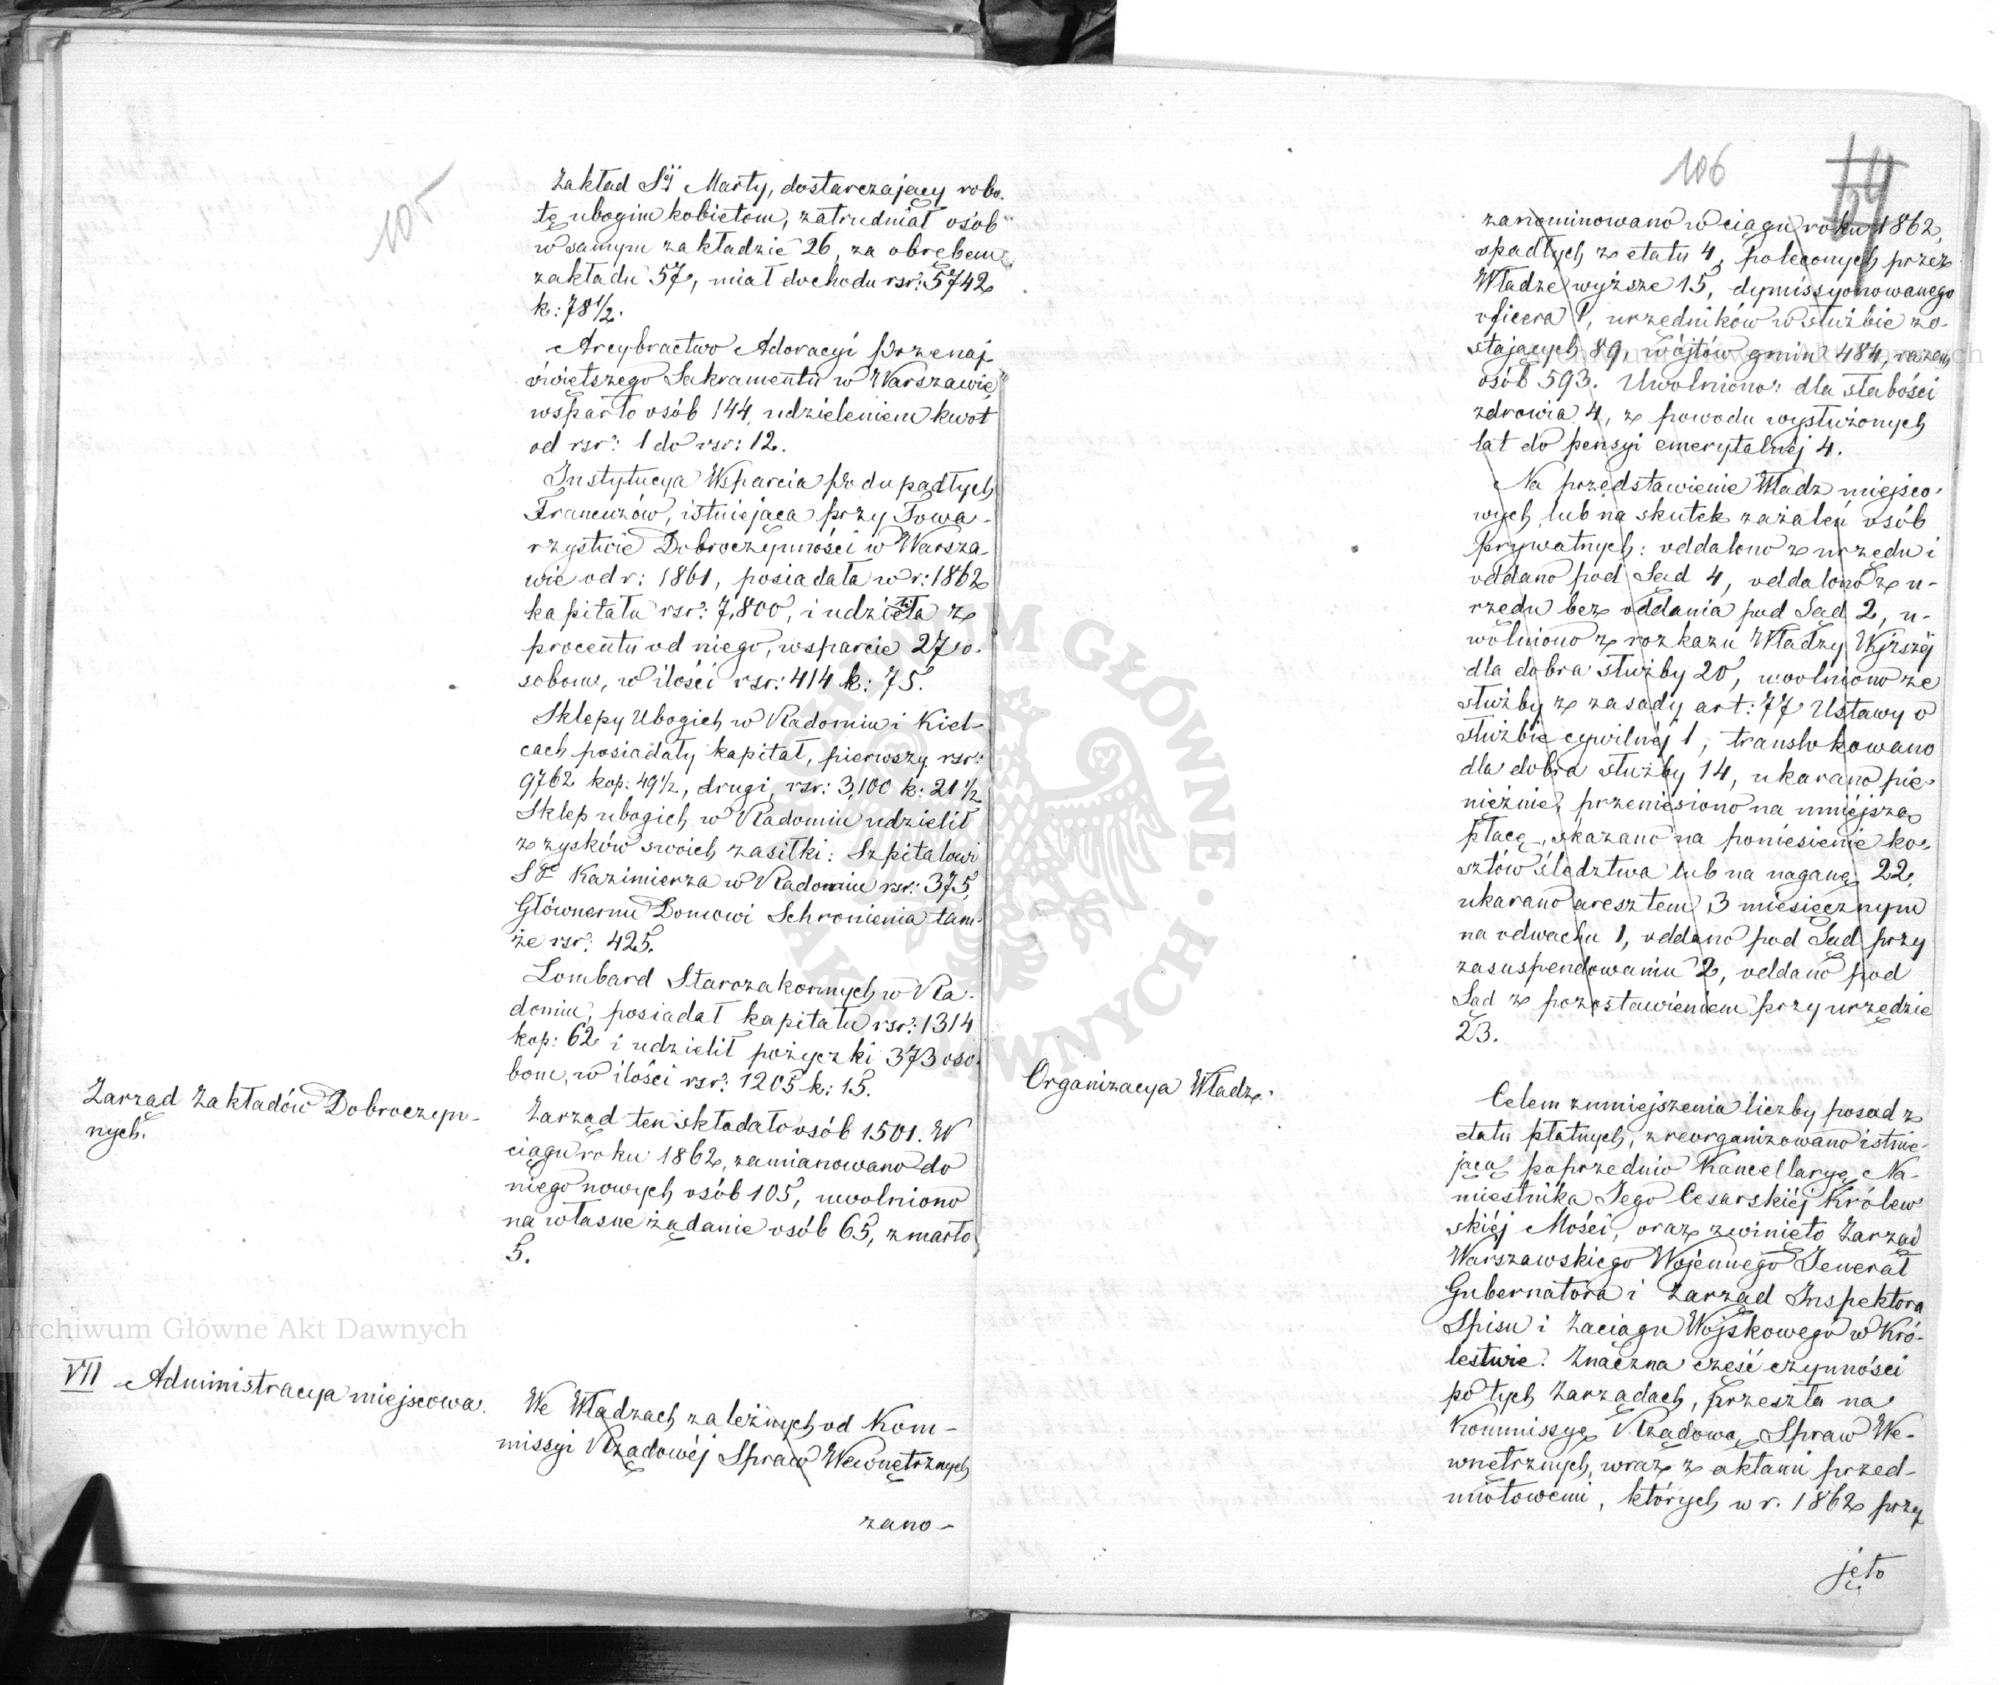 105
Zakład Sej Marty, dostarczający robo-
tę ubogim kobietom, zatrudniał osób
w samym zakładzie 26, za obrębem
zakładu 57, miał dochodu rsr: 5742
k: 78 1/2.
Arcybractwo Adoracyi Przenaj-
świętszego Sakramentu w Warszawie
wsparło osób 144, udzieleniem kwot
od rsr: 1 do rsr: 12.
Instytucya Wsparcia Podupadłych
Francuzów, istniejąca przy Towa-
rzystwie Dobroczynności w Warsza-
wie od r: 1861, posiadała w r: 1862
kapitału rsr: 7,800, i udzieliła z
procentu od niego, wsparcie 27 o-
sobom, w ilości rsr: 414 k: 75.
Sklepy Ubogich w Radomiu i Kiel-
cach posiadały kapitał, pierwszy rsr:
9762 kop: 49 1/2, drugi, rsr: 3,100 k: 21 1/2
Sklep ubogich w Radomiu udzielił
z zysków swoich zasiłki: Szpitalowi
Sgo Kazimierza w Radomiu rsr: 375,
Głównemu Domowi Schronienia tam-
że rsr: 425.
Lombard Starozakonnych w Ra-
domiu, posiadał kapitału rsr: 1314
kop: 62 i udzielił pożyczki 373 oso-
bom, w ilości rsr: 1205 k: 15.
Zarząd Zakładów Dobroczyn-
nych.
Zarząd ten składało osób 1501. W
ciągu roku 1862, zamianowano do
niego nowych osób 105, uwolniono
na własne żądanie osób 65, zmarło
5.
VII Administracya miejscowa.
We Władzach zależnych od Kom-
missyi Rządowéj Spraw Wewnętrznych
zano-
Archiwum Główne Akt Dawnych
106
zanominowano w ciągu roku 1862,
spadłych z etatu 4, poleconych przez
Władze wyższe 15, dymissyonowanego
oficera 1, urzędników w służbie zo-
stających 89, wójtów gmin 484, razem
osób 593. Uwolniono: dla słabości
zdrowia 4, z powodu wysłużonych
lat do pensyi emerytalnéj 4.
Na przedstawienie Władz miejsco-
wych lub na skutek zażaleń osób
prywatnych: oddalono z urzędu i
oddano pod Sąd 4, oddalono z u-
rzędu bez oddania pod Sąd 2, u-
wolniono z rozkazu Władzy Wyższéj
dla dobra służby 20, uwolniono ze
służby z zasady art: 77 Ustawy o
służbie cywilnéj 1, translokowano
dla dobra służby 14, ukarano pie-
niężnie, przeniesiono na mniejszą
płacę, skazano na poniesienie ko-
sztów śledztwa lub na naganę 22,
ukarano aresztem 3 miesięcznym
na odwachu 1, oddano pod Sąd przy
zasuspendowaniu 2, oddano pod
Sąd z pozostawieniem przy urzędzie
23.
Organizacya Władz.
Celem zmniejszenia liczby posad z
etatu płatnych, zreorganizowano istnie-
jącą poprzednio Kancellaryę Na-
miestnika Jego Cesarskiéj Królew-
skiéj Mości, oraz zwinięto Zarząd
Warszawskiego Wojennego Jenerał
Gubernatora i Zarząd Inspektora
Spisu i Zaciągu Wojskowego w Kró-
lestwie. Znaczna część czynności
po tych Zarządach, przeszła na
Kommissyę Rządową Spraw We-
wnętrznych, wraz z aktami przed-
miotowemi, których w r. 1862 przy
jęto
ARCHIWUM GŁÓWNE · AKT DAWNYCH ·
Archiwum Główne Akt Dawnych